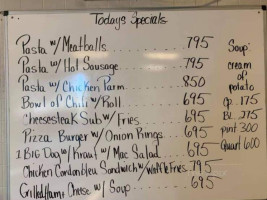 Todays Specials
Pasta w/ Meatballs........ 795
Pasta w/ Hot Sausage...... 795
Pasta w/ Chicken Parm..... 850
Bowl of Chili w/ Roll....... 695
Cheesesteak Sub w/ Fries.... 695
Pizza Burger w/ Onion Rings... 695
1 BIG Dog w/ Kraut w/ Mac Salad... 695
Chicken Cordon bleu Sandwich w/ Waffle Fries. 795
Grilled Ham & Cheese w/ Soup..... 695
Soup
cream
of
potato
Cp. 175
BL. 275
pint 300
Quart 600